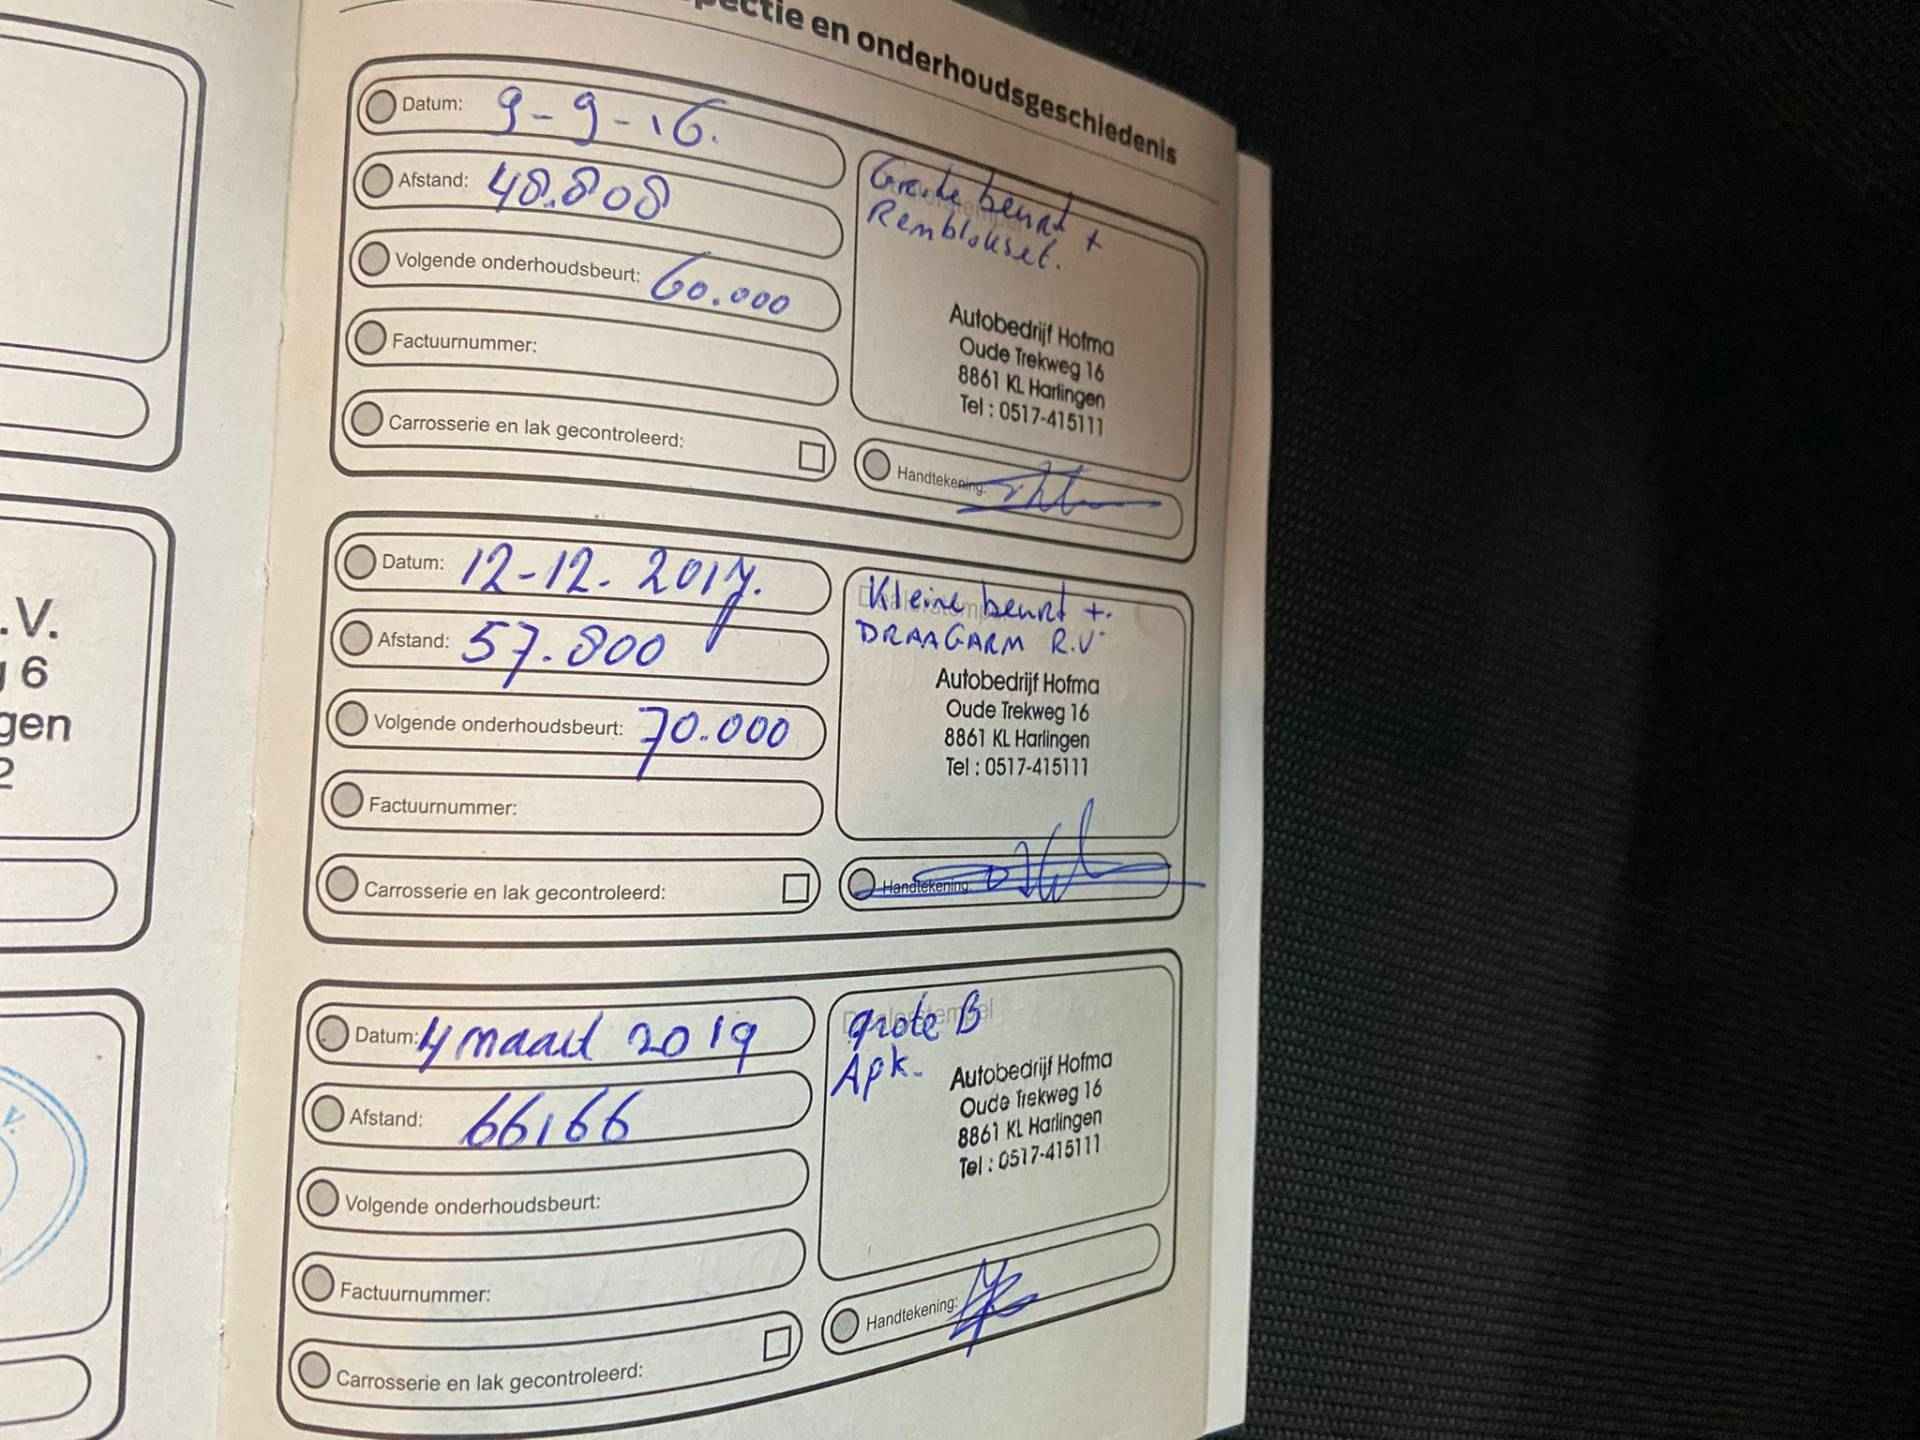 .V.
6
gen
2
v.
pectie en onderhoudsgeschiedenis
Datum: 9-9-16.
Afstand: 48.808
Volgende onderhoudsbeurt: 60.000
Factuurnummer:
Carrosserie en lak gecontroleerd:
Grote beurt +
Remblokset.
Autobedrijf Hofma
Oude Trekweg 16
8861 KL Harlingen
Tel : 0517-415111
Handtekening:
Datum: 12-12-2017.
Afstand: 57.800
Volgende onderhoudsbeurt: 70.000
Factuurnummer:
Carrosserie en lak gecontroleerd:
Kleine beurt +.
DRAAGARM R.V
Autobedrijf Hofma
Oude Trekweg 16
8861 KL Harlingen
Tel : 0517-415111
Handtekening:
Datum: 4 maart 2019
Afstand: 66166
Volgende onderhoudsbeurt:
Factuurnummer:
Carrosserie en lak gecontroleerd:
grote B
Apk.
Autobedrijf Hofma
Oude Trekweg 16
8861 KL Harlingen
Tel : 0517-415111
Handtekening: